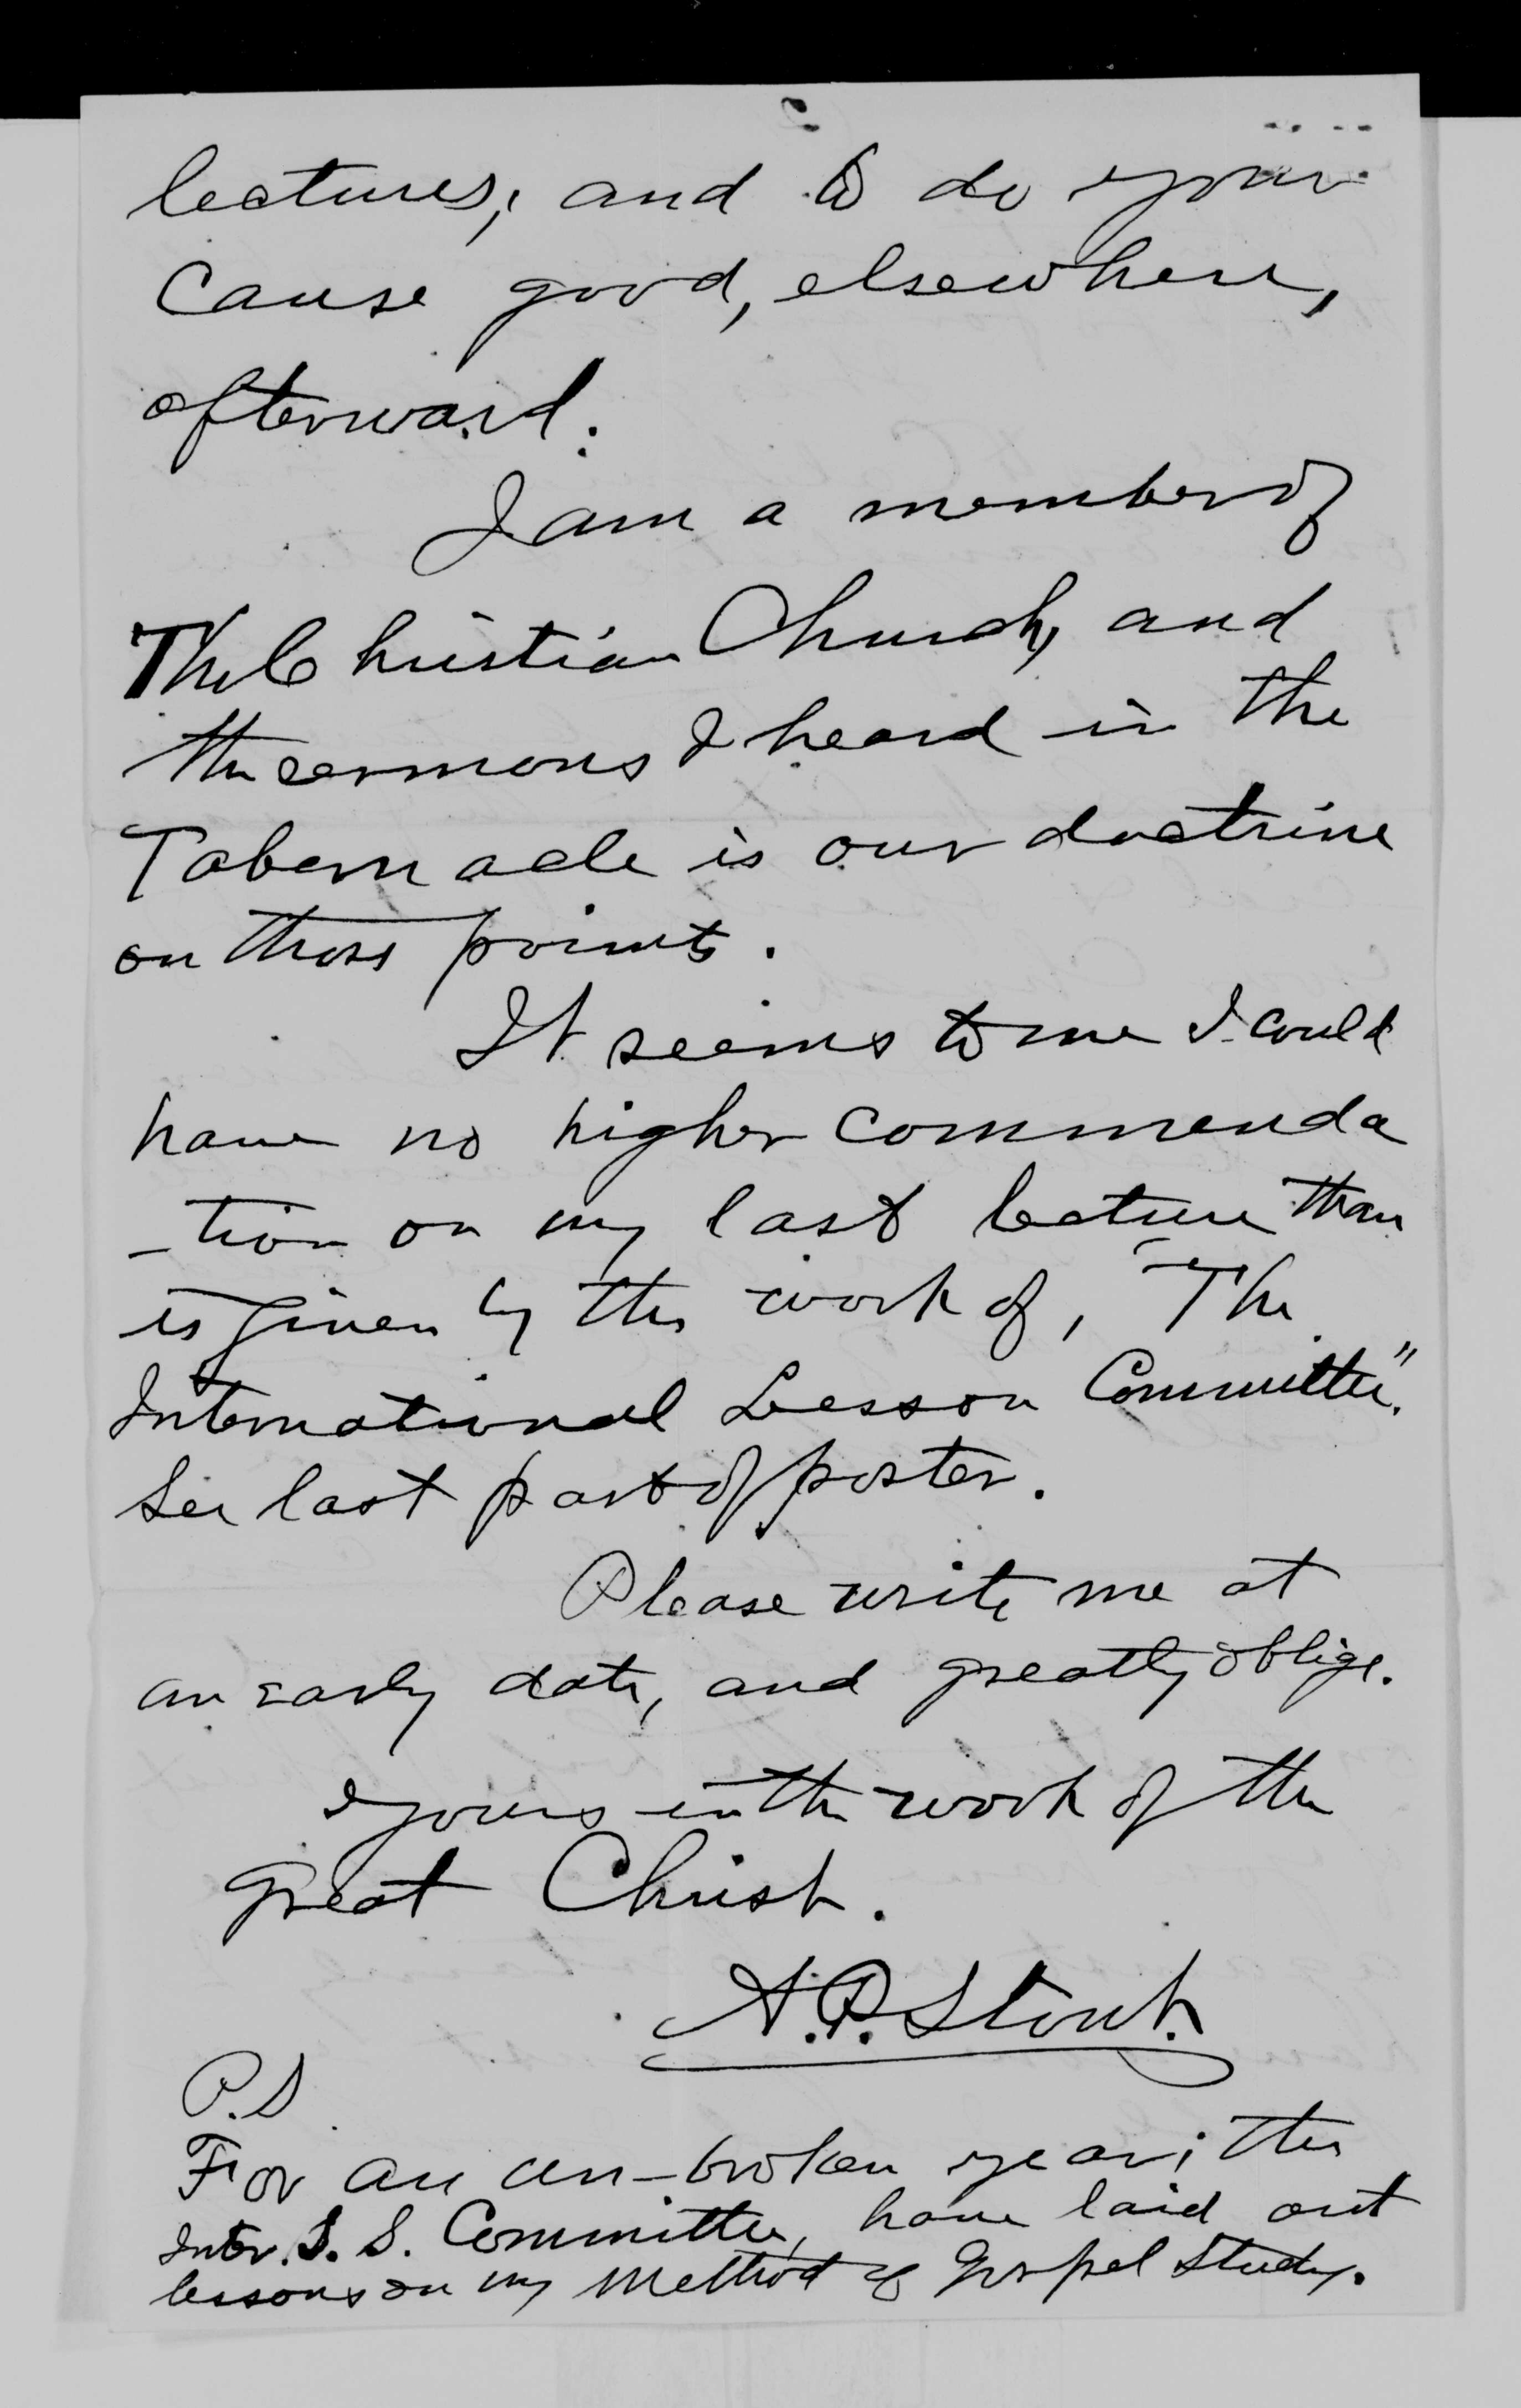 2
lectures, and to do your
cause good, elsewhere,
afterward.
I am a member of
The Christian Church, and
the sermons I heard in the
Tabernacle is our doctrine
on those points.
It seems to me I could
have no higher commenda
-tion on my last lecture than
is given by the work of, "The
International Lesson Committee."
See last part of poster.
Please write me at
an early date, and greatly oblige.
Yours in the work of the
great Christ.
A.P. Stout.
P.S
For an un-broken year; the
Inter. S. S. Committee, have laid out
lessons on my method of Gospel Study.